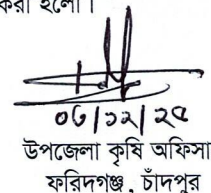 করা হলো।
০৬/১২/২৫
উপজেলা কৃষি অফিসা
ফরিদগঞ্জ, চাঁদপুর